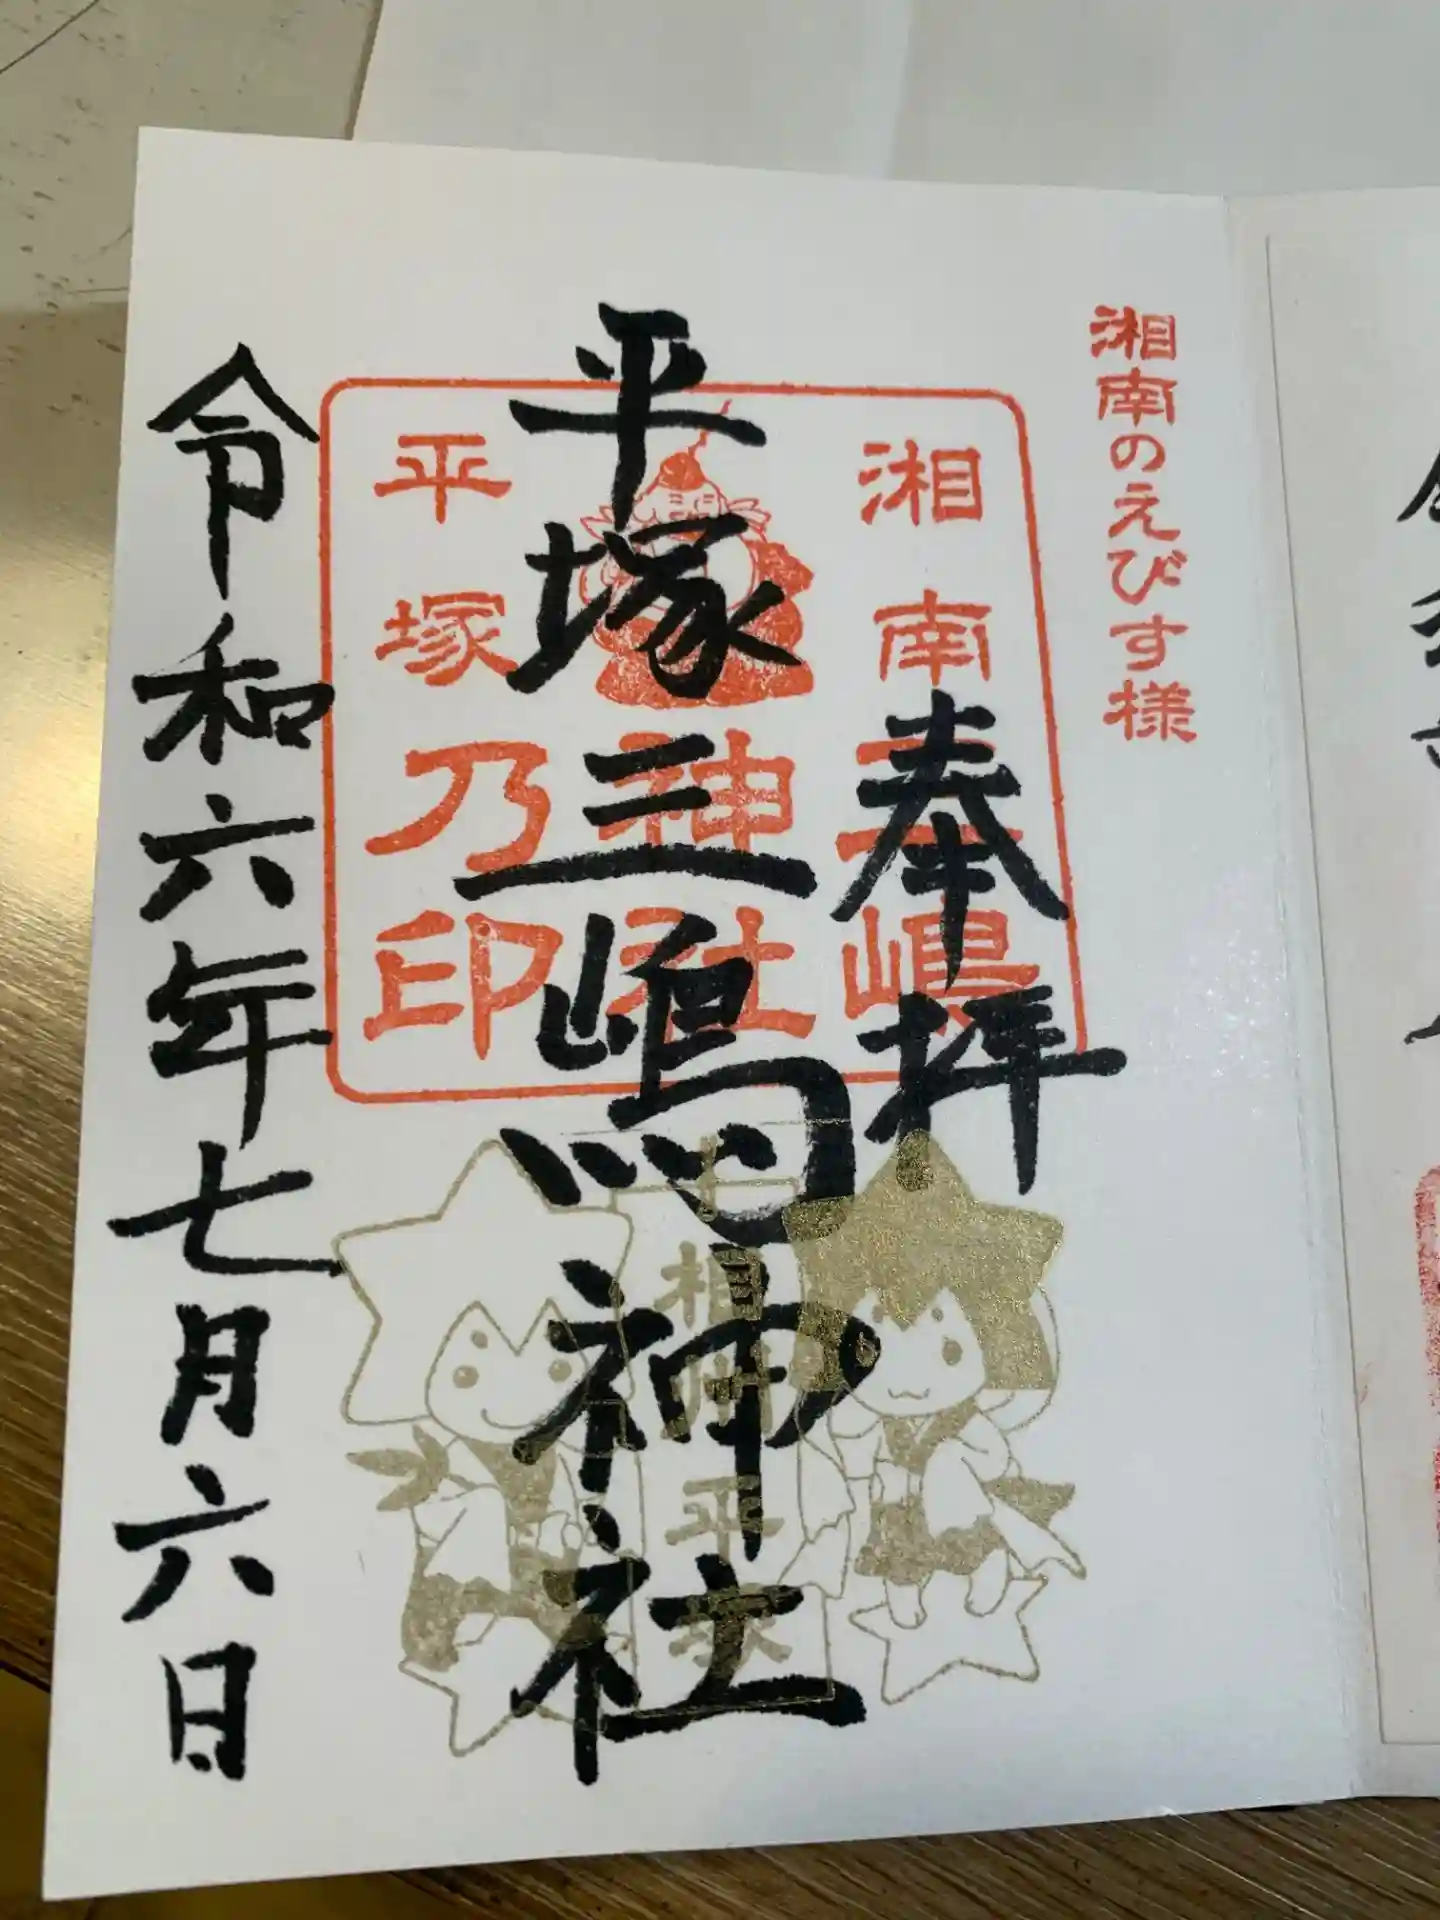 湘南のえびす様
奉拝
湘南三嶋
神社
平塚乃印
平塚三嶋神社
相州平塚
令和六年七月六日